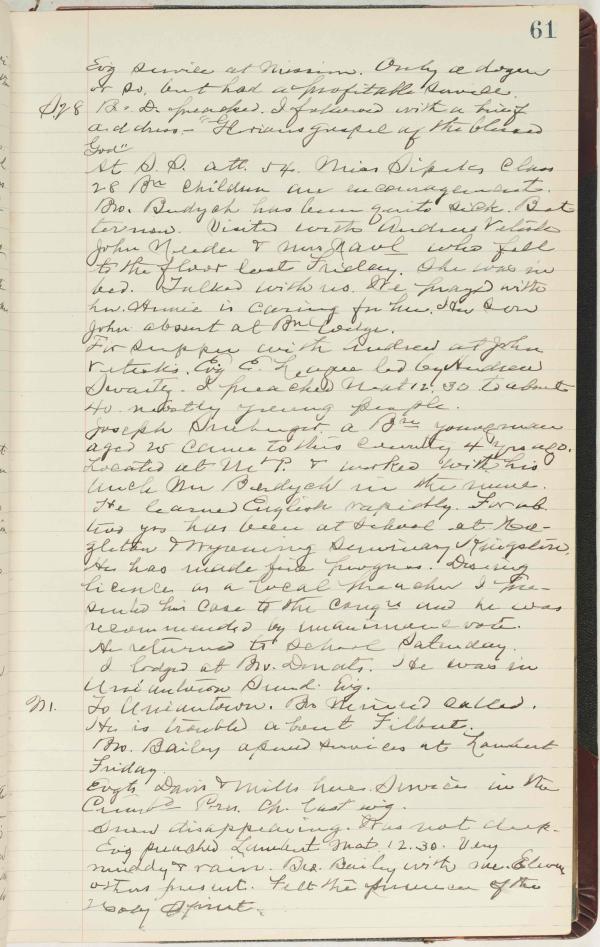 61
Evg service at Mission. Only a dozen
or so, but had a profitable service.
S. 28 Bro D. preached. I followed with a brief
address - "Glorious gospel of the blessed
God"
At S. S. att. 54. Miss Class
28 Bn children are encouragements.
Bro. Budych has been quite sick. Bet
ter now. Visited with Andrew
John & Mrs Pavl who fell
to the floor last Friday. She was in
bed. Talked with us. We prayed with
her. Annie is caring for her. Her son
John absent at Bn Lodge.
For supper with Andrew at John
Evg E. League led by Andrew
I preached Mat 12.30 to about
40 mostly young people.
Joseph a Bn young man
aged 25 came to this country 4 yrs ago.
Located at Mt P. & worked with his
uncle Mr Budych in the mine.
He learned English rapidly. For ab
two yrs has been at school at Haz-
gleton & Wyoming Seminary Kingston.
He has made fine progress. Desiring
licence as a local preacher I pre-
sented his case to the congre and he was
recommended by unanimous vote.
He returned to school Saturday.
I lodged at Bro. Donats. He was in
Uniontown Sund. Evg.
M 1. To Uniontown. Bro called.
He is trouble about Filbert.
Bro. Bailey opened services at Lambert
Friday.
Evgts Davis & Mills have services in the
Cumb Pres. Ch. last evg.
Snow disappearing. Was not deep.
Evg preached Lambert Mat. 12.30. Very
muddy & rain. Bro. Bailey with me. Eleven
others present. Felt the presence of the
Holy Spirit.